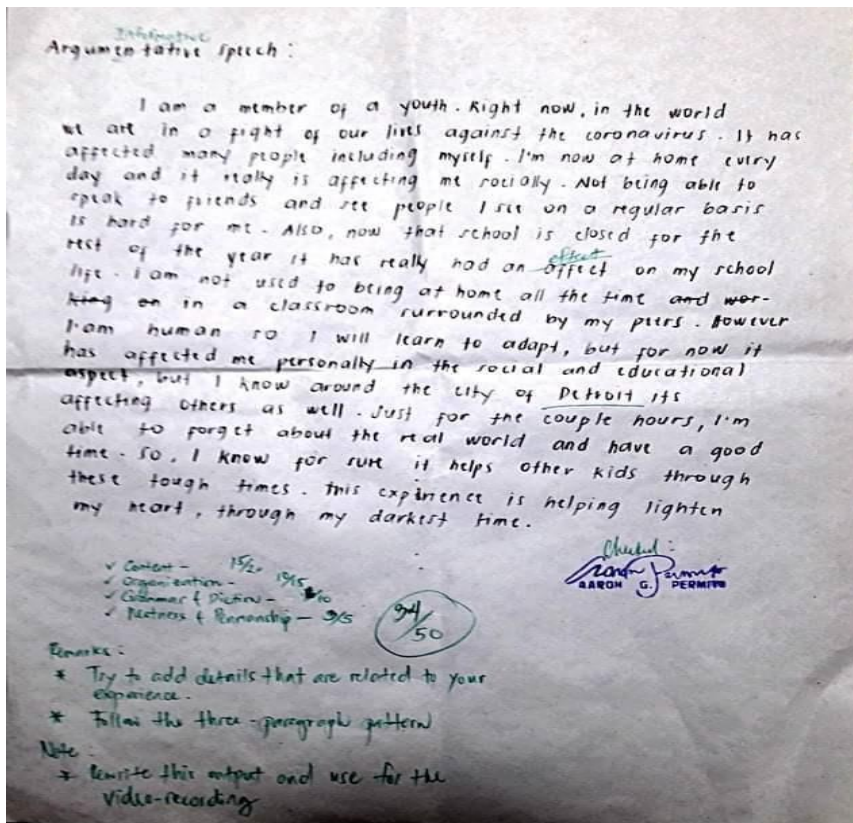 Informative
Argumentative speech :
I am a member of a youth. Right now, in the world
we are in a fight of our lives against the coronavirus. It has
affected many people including myself. I'm now at home every
day and it really is affecting me socially. Not being able to
speak to friends and see people I see on a regular basis
is hard for me. Also, now that school is closed for the
effect
rest of the year it has really had an affect on my school
life. I am not used to being at home all the time and wor-
king on in a classroom surrounded by my peers. However
I am human so I will learn to adapt, but for now it
has affected me personally in the social and educational
aspect, but I know around the city of Detroit its
affecting others as well. Just for the couple hours, I'm
able to forget about the real world and have a good
time. So, I know for sure it helps other kids through
these tough times. This experience is helping lighten
my heart, through my darkest time.
Checked :
AARON G. PERMITO
✓ Content - 15/20
✓ Organization - 10/15
✓ Grammar & Diction - /10
✓ Neatness & Penmanship - 3/5
34/50
Remarks :
* Try to add details that are related to your
experience.
* Follow the three-paragraph pattern
Note :
* Rewrite this output and use for the
video-recording